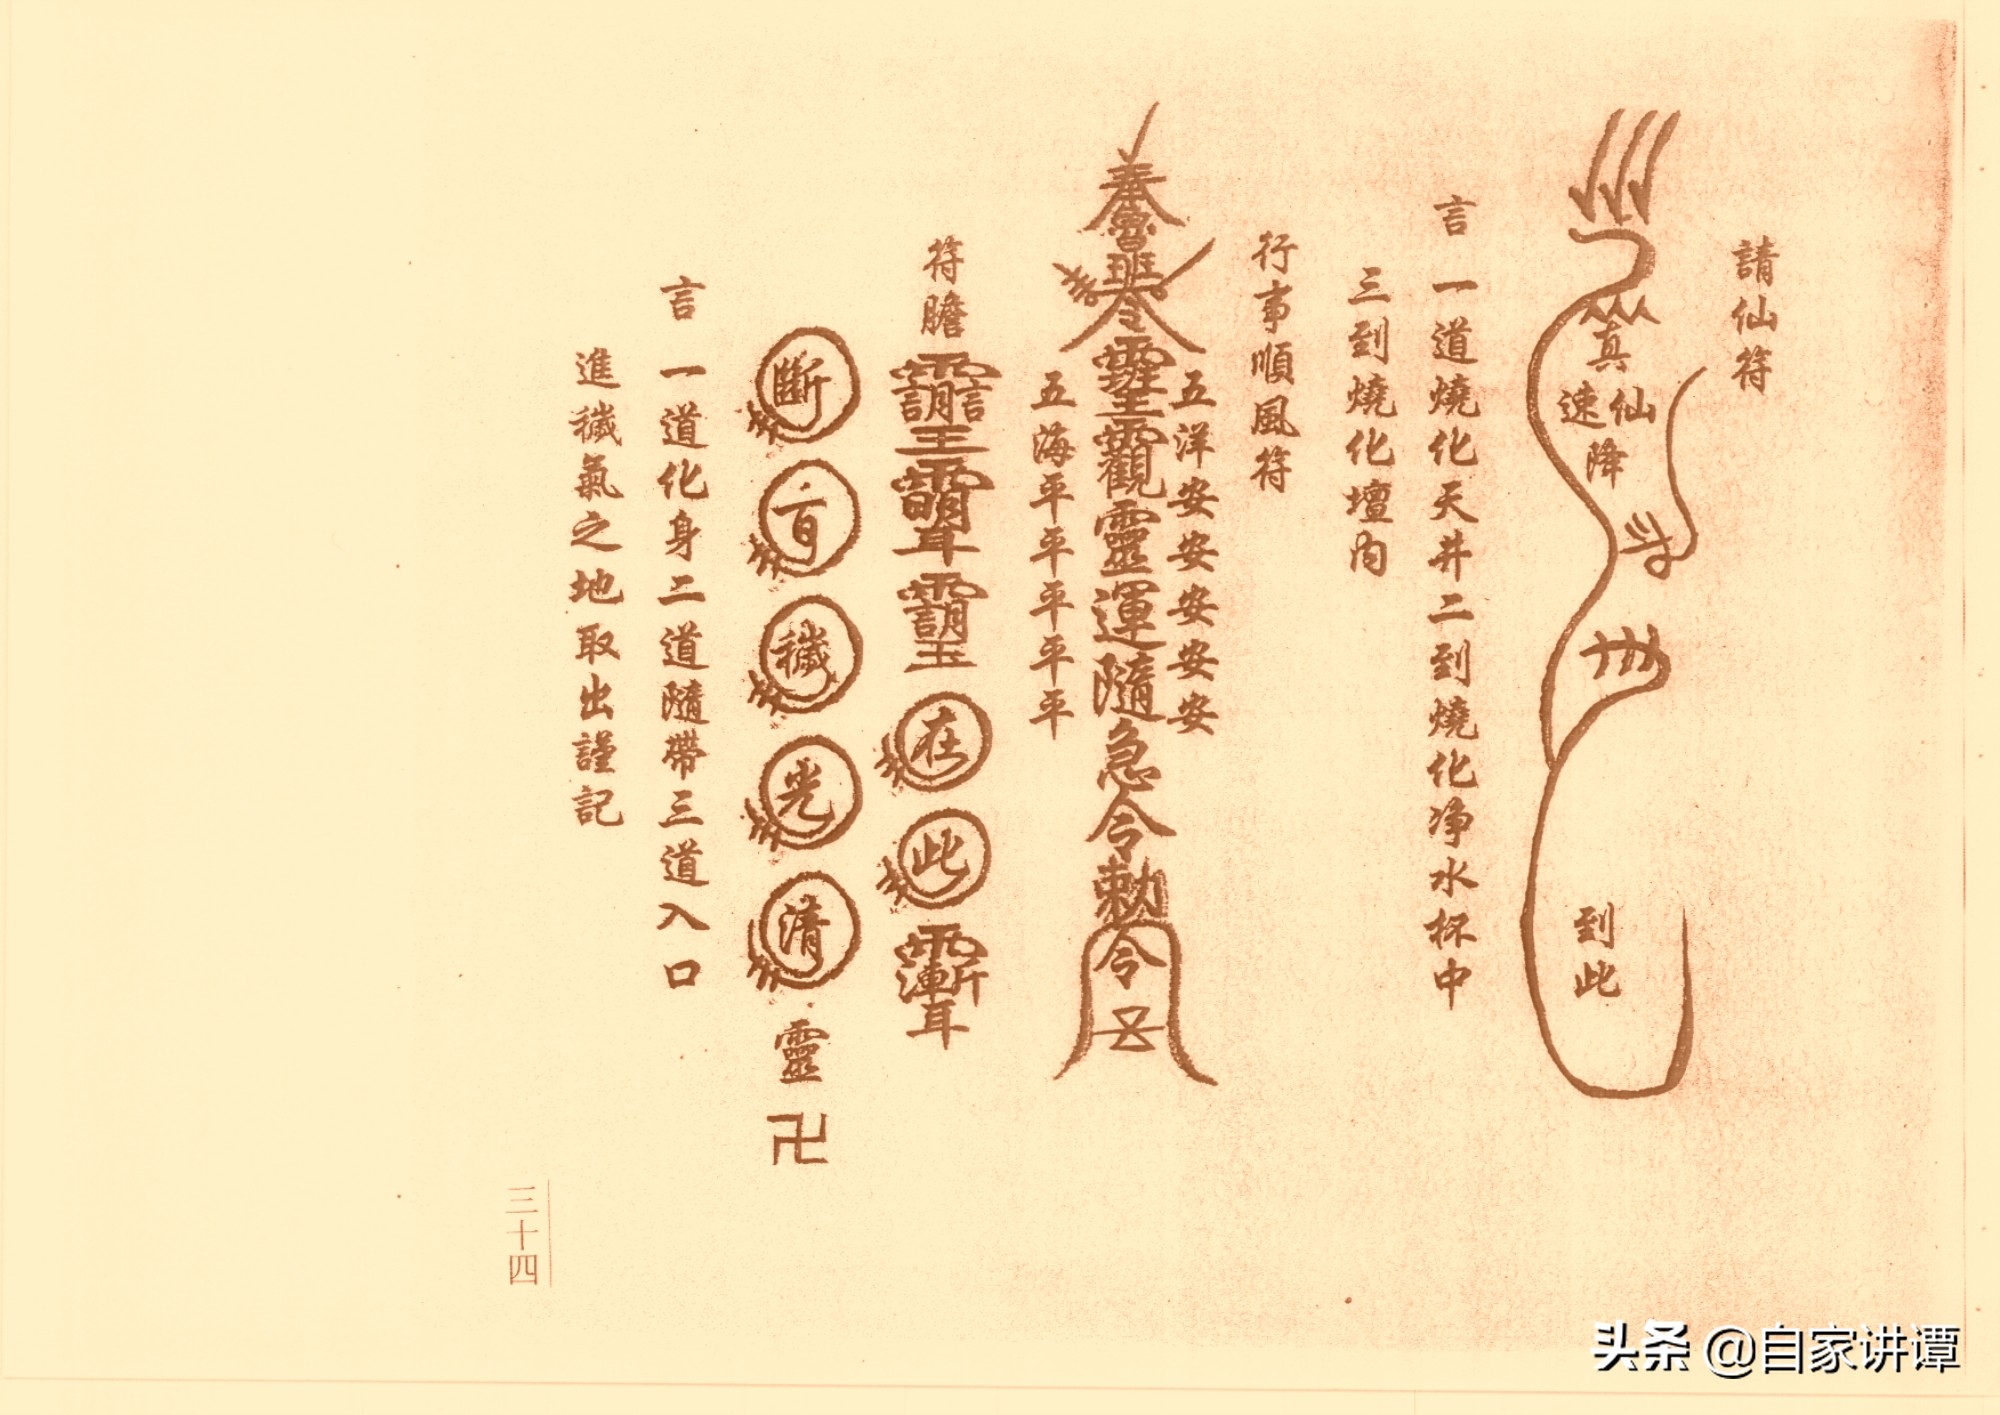 請仙符
真仙速降
到此
言一道燒化天井二到燒化净水杯中
三到燒化壇內
行事順風符
五洋安安安安安
奉魯班令
觀靈運隨急令勅令
五海平平平平平
符膽
在此
斷百穢光清靈卍
言一道化身二道隨帶三道入口
進穢氣之地取出謹記
三十四
头条 @自家讲谭